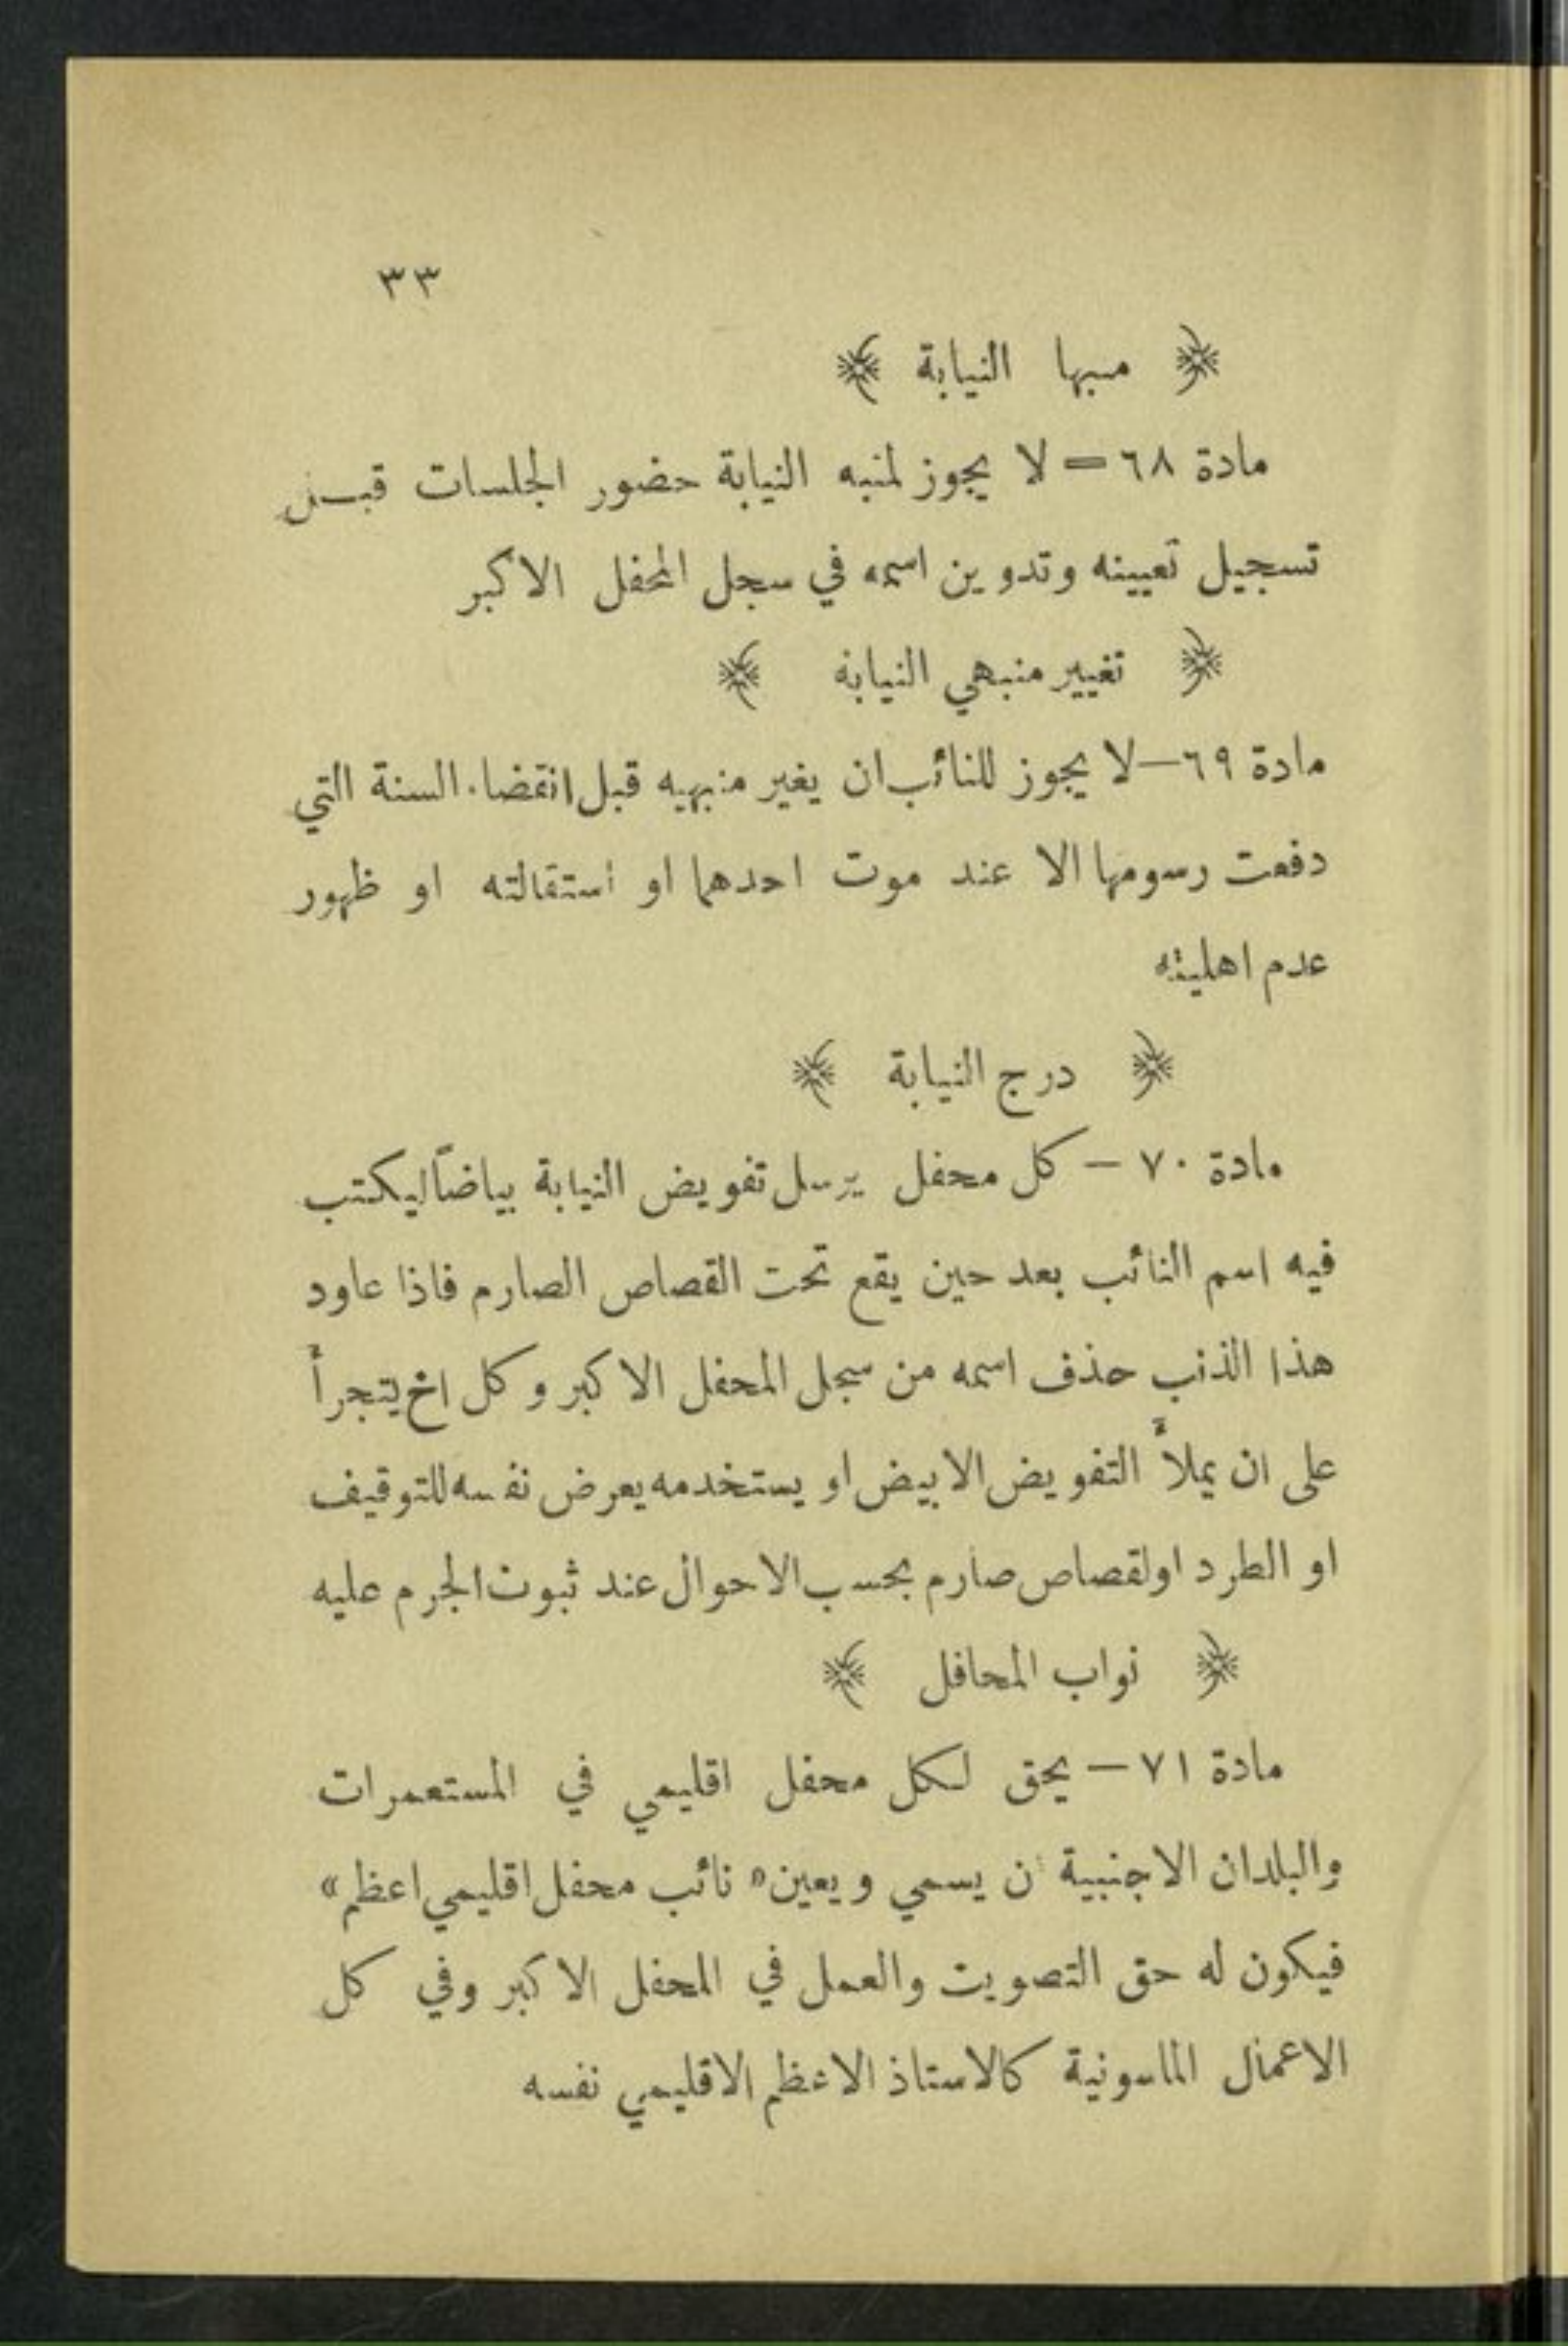 ٣٣
﴿ مسبها النيابة ﴾
مادة ٦٨ = لا يجوز لمنبه النيابة حضور الجلسات قبل
تسجيل تعيينه وتدوين اسمه في سجل المحفل الاكبر
﴿ تغيير منبهي النيابة ﴾
مادة ٦٩ — لا يجوز للنائب ان يغير منبهيه قبل انقضاء السنة التي
دفعت رسومها الا عند موت احدهما او استقالته او ظهور
عدم اهليته
﴿ درج النيابة ﴾
مادة ٧٠ — كل محفل يرسل تفويض النيابة بياضاً ليكتب
فيه اسم النائب بعد حين يقع تحت القصاص الصارم فاذا عاود
هذا الذنب حذف اسمه من سجل المحفل الاكبر وكل اخ يتجرأ
على ان يملأ التفويض الابيض او يستخدمه يعرض نفسه للتوقيف
او الطرد او لقصاص صارم بحسب الاحوال عند ثبوت الجرم عليه
﴿ نواب المحافل ﴾
مادة ٧١ — يحق لكل محفل اقليمي في المستعمرات
والبلدان الاجنبية ان يسمي ويعين « نائب محفل اقليمي اعظم »
فيكون له حق التصويت والعمل في المحفل الاكبر وفي كل
الاعمال الماسونية كالاستاذ الاعظم الاقليمي نفسه